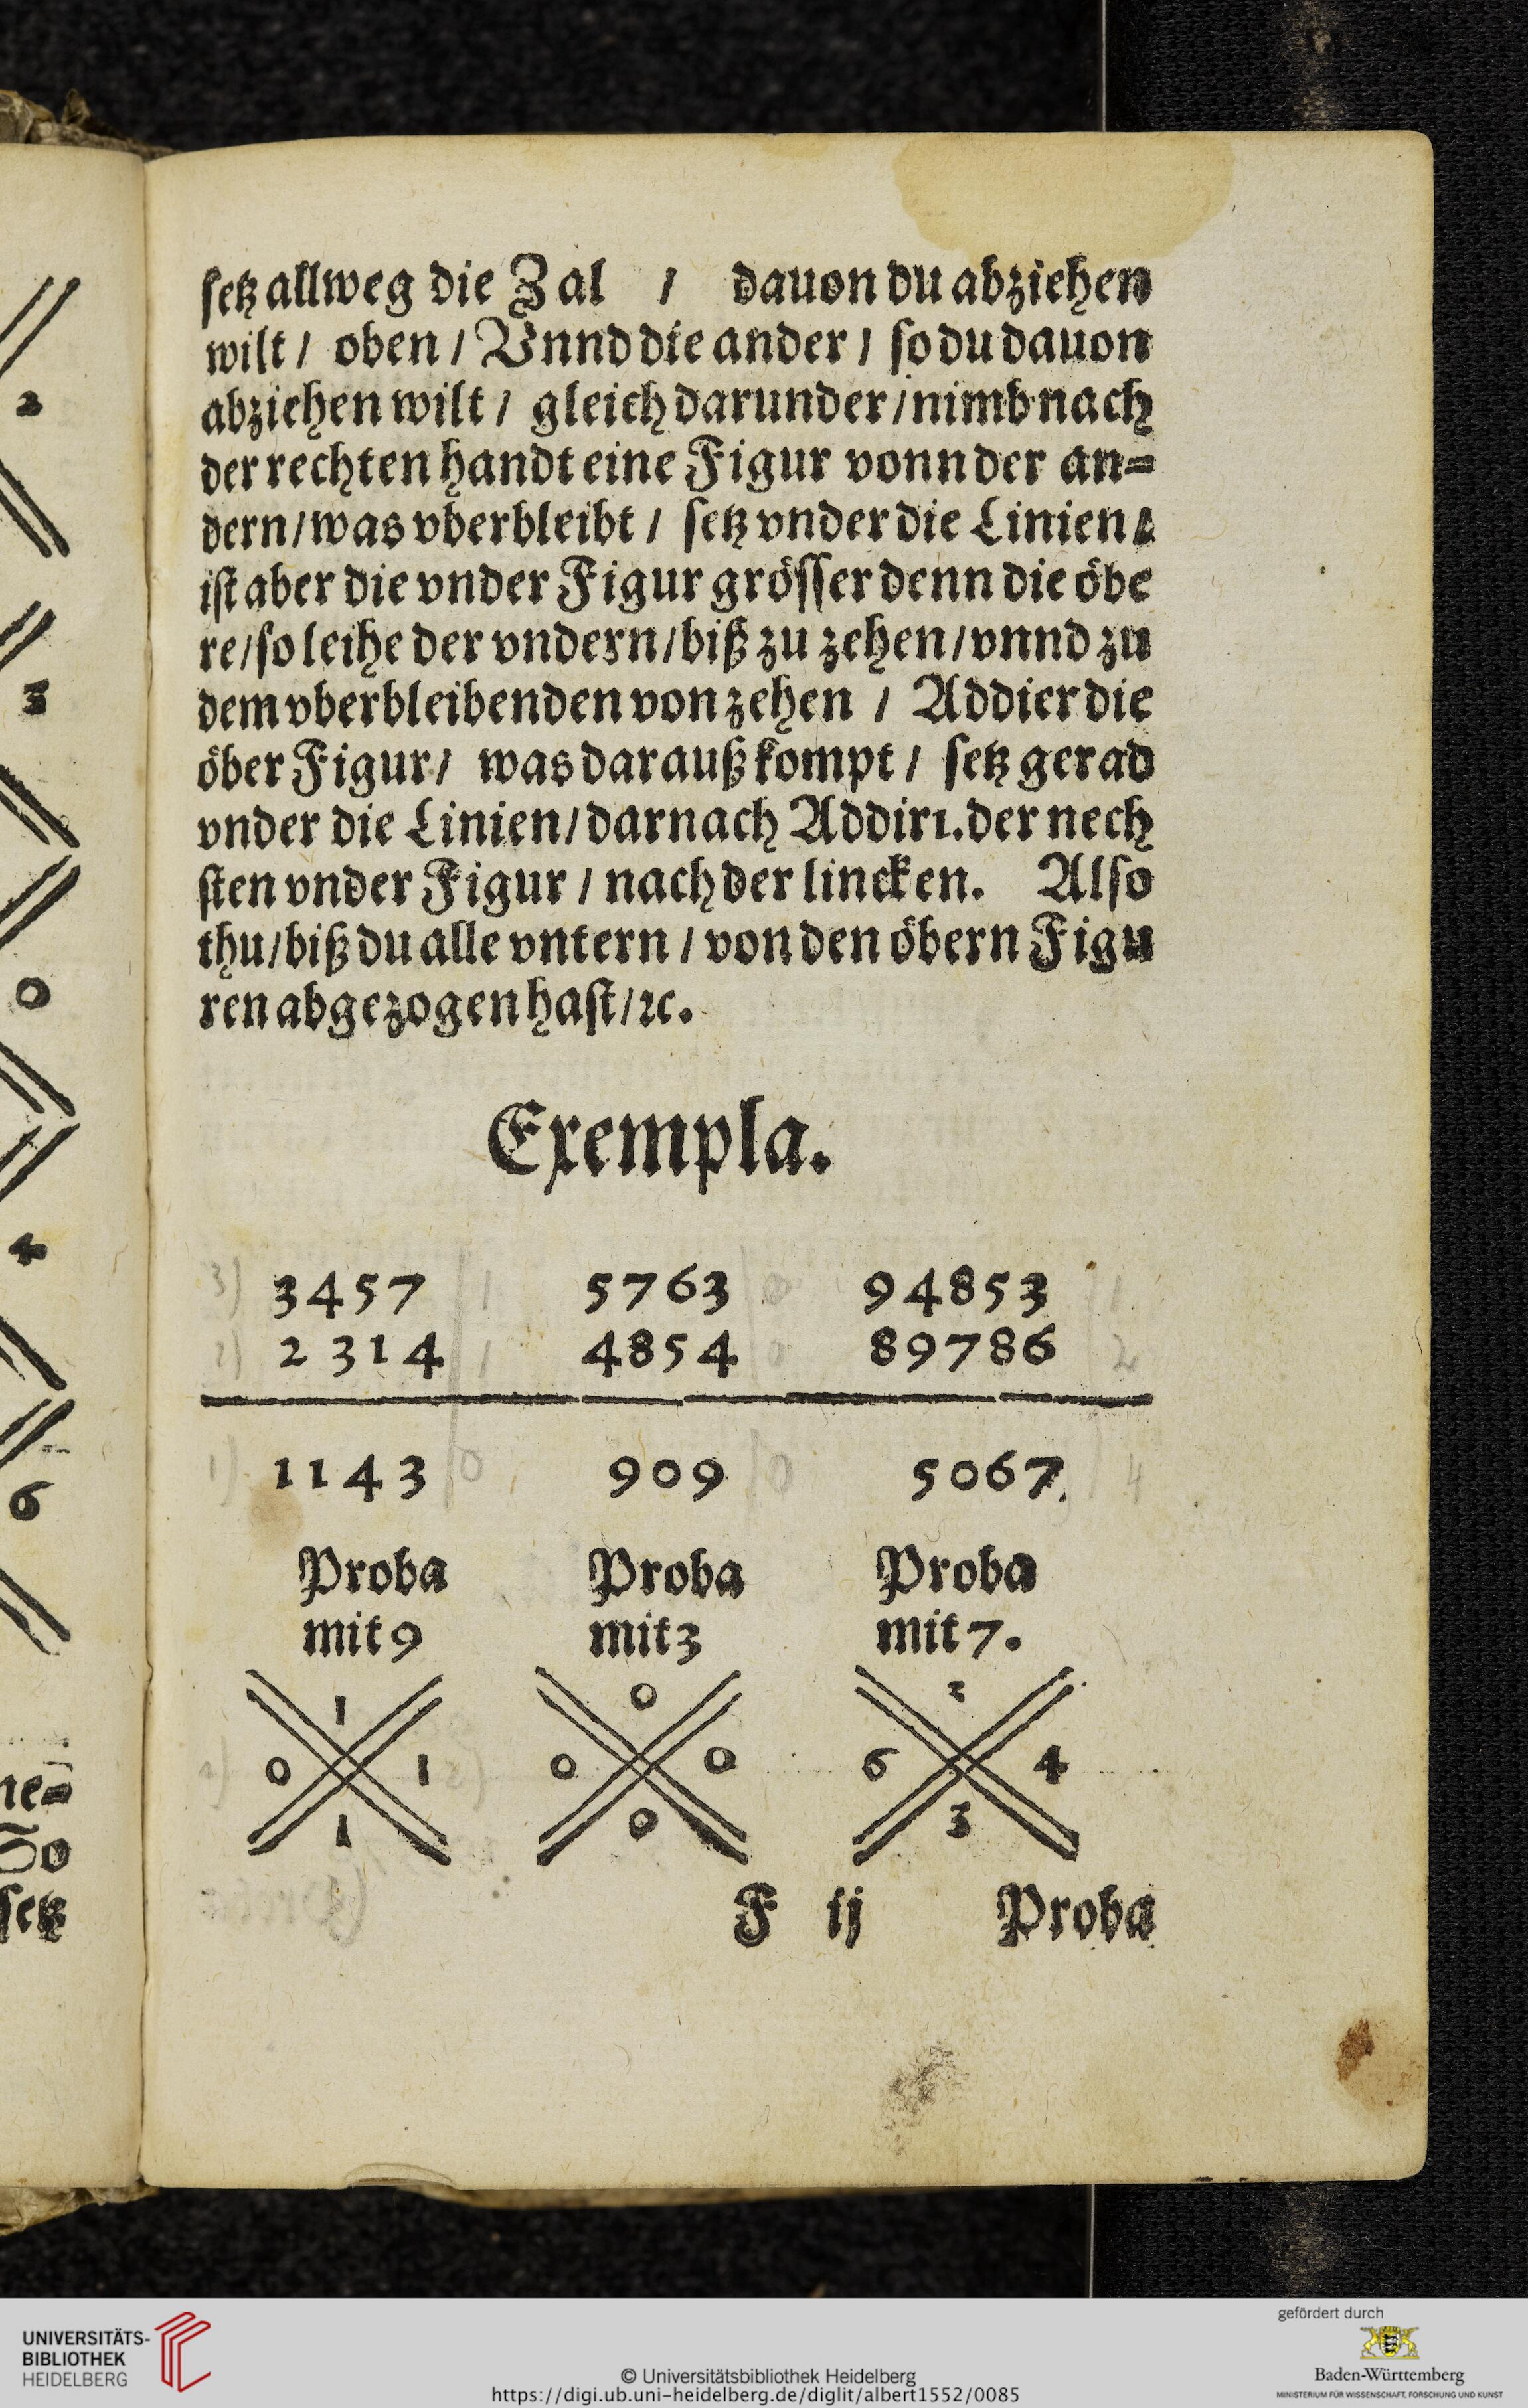 setz allweg die Zal / dauon du abziehen
wilt / oben / Vnnd die ander / so du dauon
abziehen wilt / gleich darunder / nimb nach
der rechten handt eine Figur vonn der an=
dern / was vberbleibt / setz vnder die Linien /
ist aber die vnder Figur grösser denn die öbe
re / so leihe der vndern / biß zu zehen / vnnd zu
dem vberbleibenden von zehen / Addier die
öber Figur / was darauß kompt / setz gerad
vnder die Linien / darnach Addir 1. der nech
sten vnder Figur / nach der lincken. Also
thu / biß du alle vntern / von den öbern Figu
ren abgezogen hast / ꝛc.
Exempla.
3457 5763 94853
2314 4854 89786
1143 909 5067.
Proba Proba Proba
mit 9 mit 3 mit 7.
1 0 2
0 1 0 0 6 4
1 0 3
F ij Proba
2
3
0
4
6
ne=
So
setz
UNIVERSITÄTS-
BIBLIOTHEK
HEIDELBERG
© Universitätsbibliothek Heidelberg
https://digi.ub.uni-heidelberg.de/diglit/albert1552/0085
gefördert durch
Baden-Württemberg
MINISTERIUM FÜR WISSENSCHAFT, FORSCHUNG UND KUNST